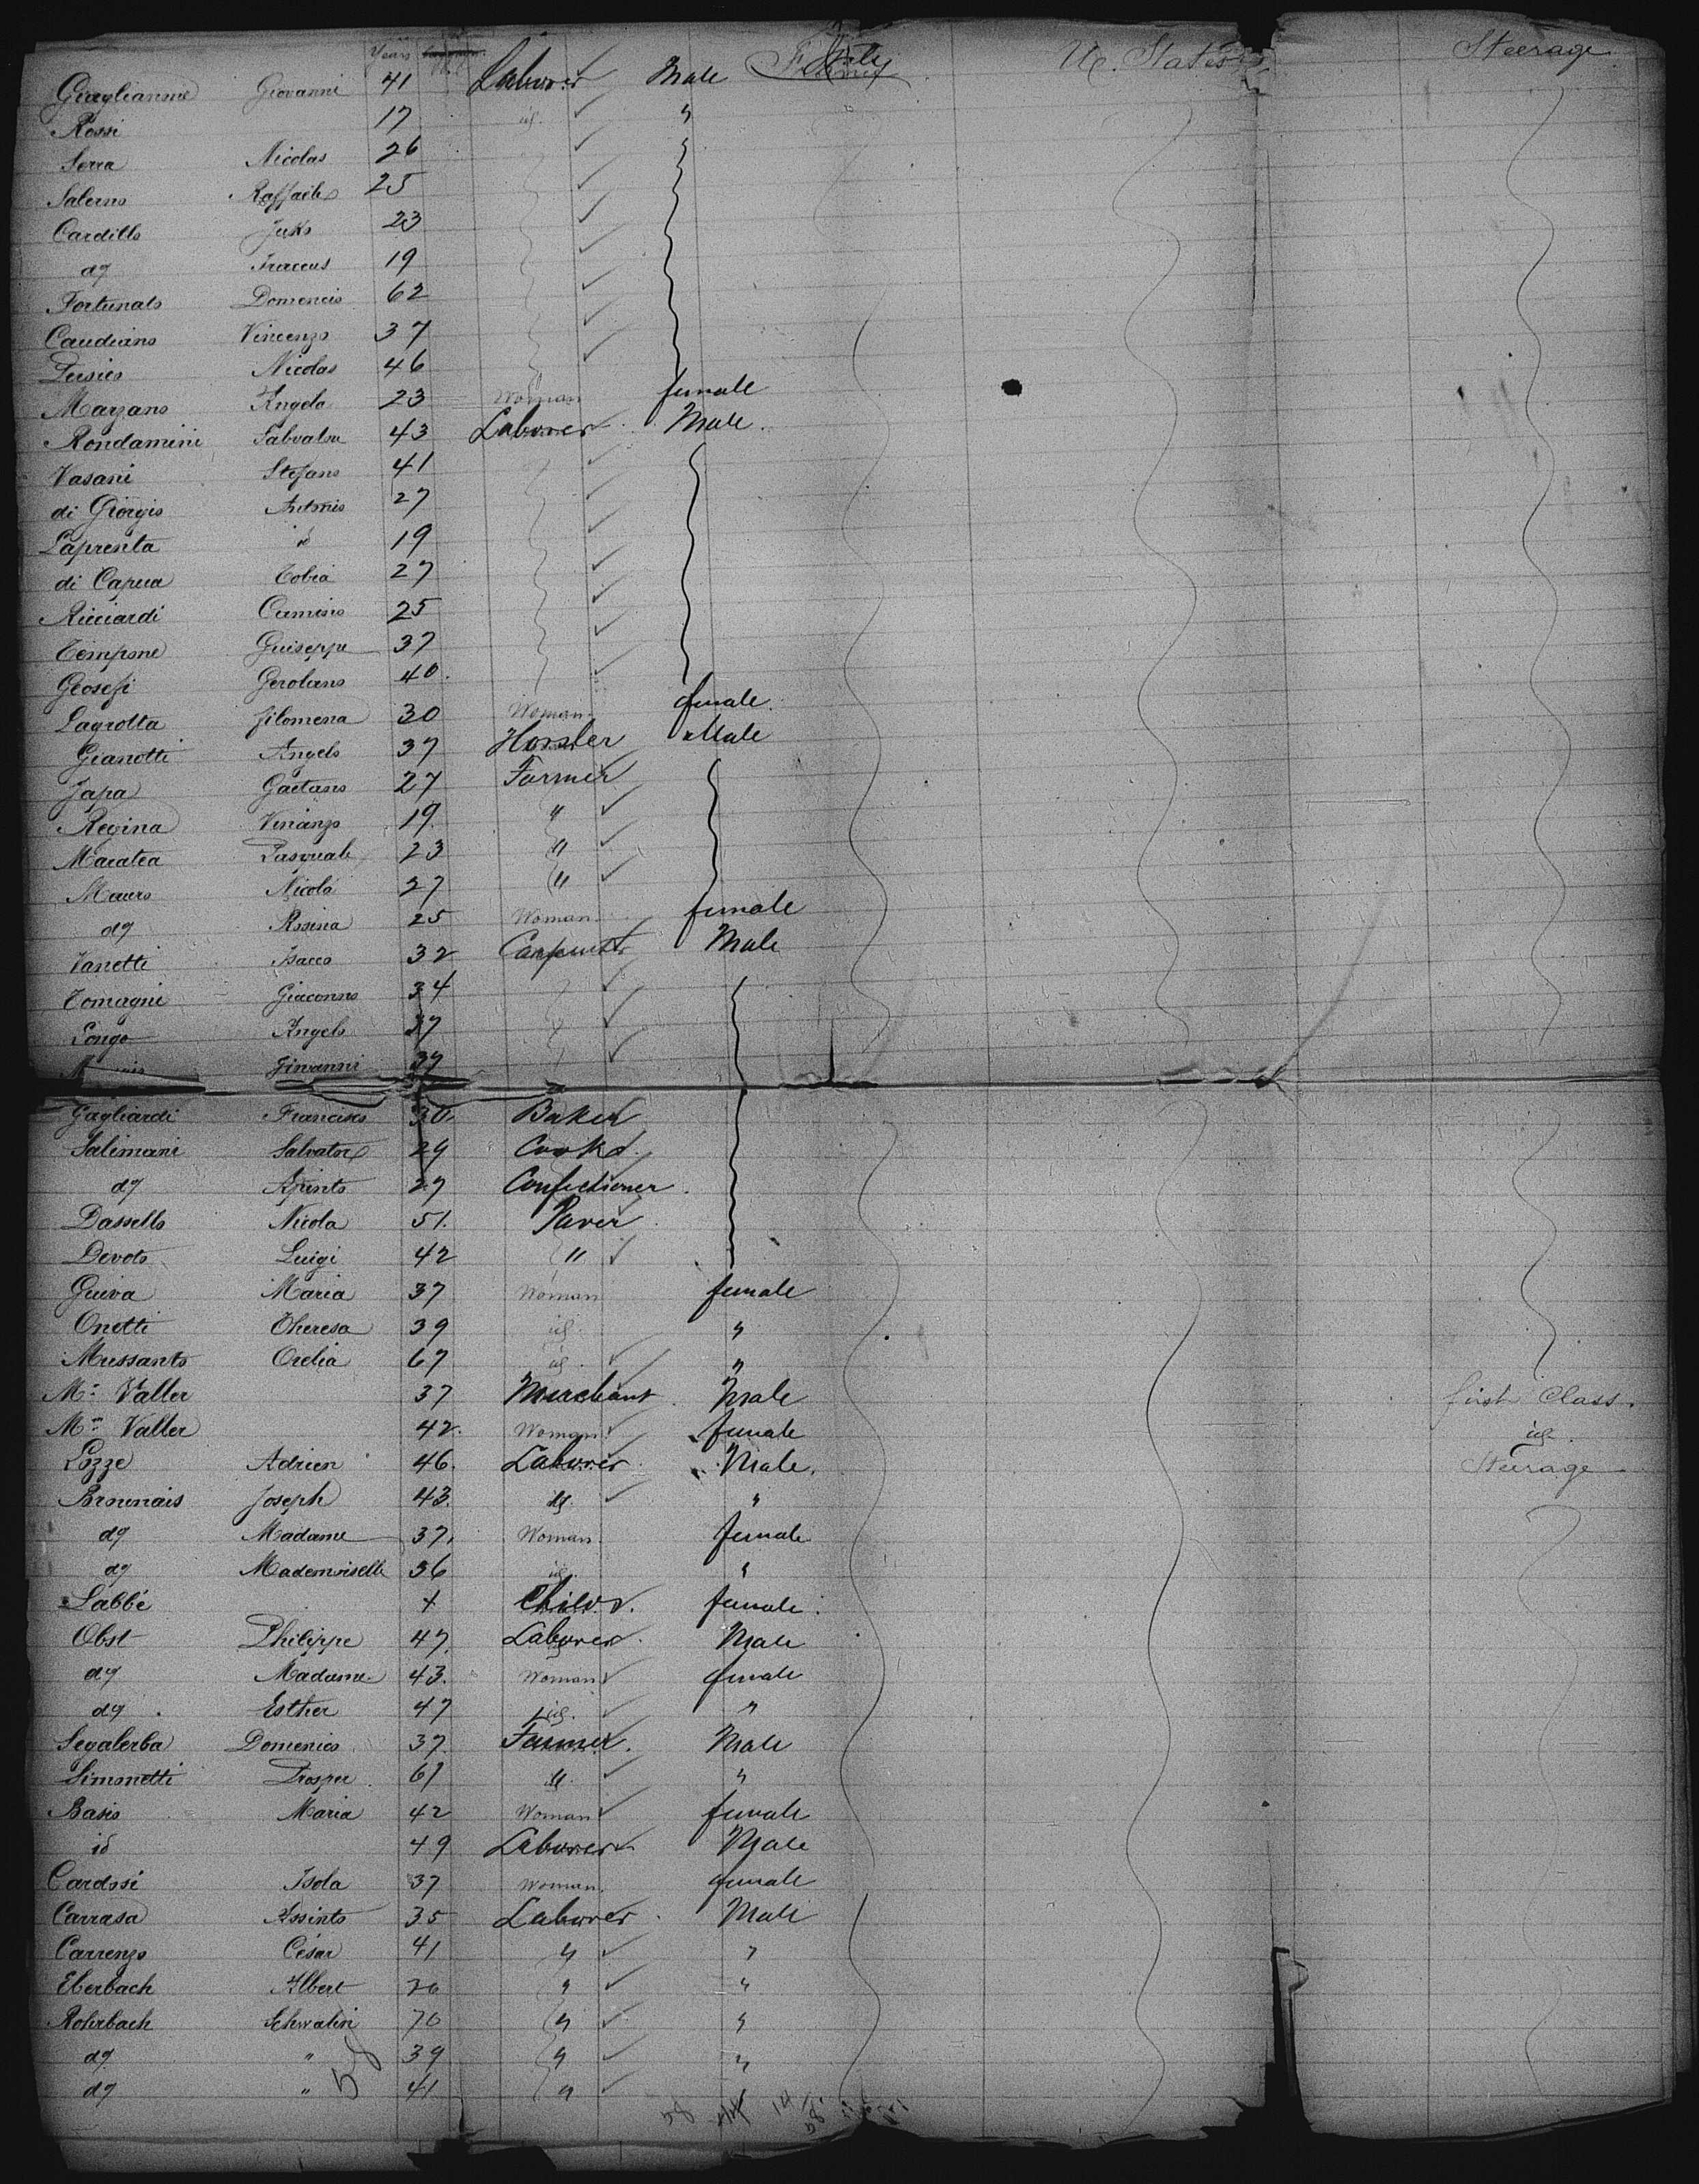 Years
Giaglianme Giovanni 41 Laborer Male Italy U. States Steerage
Rossi 17 id. "
Serra Nicolas 26
Salerno Raffaele 25
Cardillo Justo 23
dº 19
Fortunato Domenico 62
Caudiano Vincenzo 37
Nicolas 46
Marzano Angelo 23 Woman female
Rondamini Salvator 43 Laborer Male.
Vasani Stefano 41
di Giorgio Antonio 27
Lapresta id 19
di Capua Tobia 27
Ricciardi 25
Tempone Guiseppe 37
Geosefi Gerolano 40.
Lagrotta filomena 30 Woman female.
Gianotti Angelo 37 Hosler Male
Japa Gaetano 27 Farmer
Regina Vinanzo 19. "
Maratea Pasquale 23 "
Mauro Nicola 27 "
dº Rosina 25 Woman female
Vanetti Isacco 32 Carpenter Male
Tomagni Giaconno 34
Longo Angelo 37
Giovanni 37
Gagliardi Francisco 30 Baker
Salimani Salvator 29 Cook
dº 27 Confectioner.
Dassello Nicola 51. Paver
Devoto Luigi 42 "
Guiva Maria 37 Woman female
Onetti Theresa 39 id. "
Mussanto Orelia 67 id. "
Mr. Valler 37 Merchant Male first Class.
Mme Valler 42. Woman female id.
Lozze Adrien 46. Laborer Male. Steerage
Brounais Joseph 43. id. "
dº Madame 37. Woman female
dº Mademoiselle 36 id. "
Labbé + Child. female.
Obst Philippe 47. Laborer Male
dº Madame 43. Woman female
dº Esther 47 id. "
Segalerba Domenico 37. Farmer. Male
Simonetti Prosper 61 id. "
Basio Maria 42 Woman female
id 49 Laborer Male
Cardosi Isola 37 Woman. female
Carrasa Assinto 35 Laborer Male
Carrenzo César 41 " "
Eberbach Albert 26 " "
Rohrbach Schwalin 70 " "
dº " 39 " "
dº " 41 " "
58
58 44 14
58